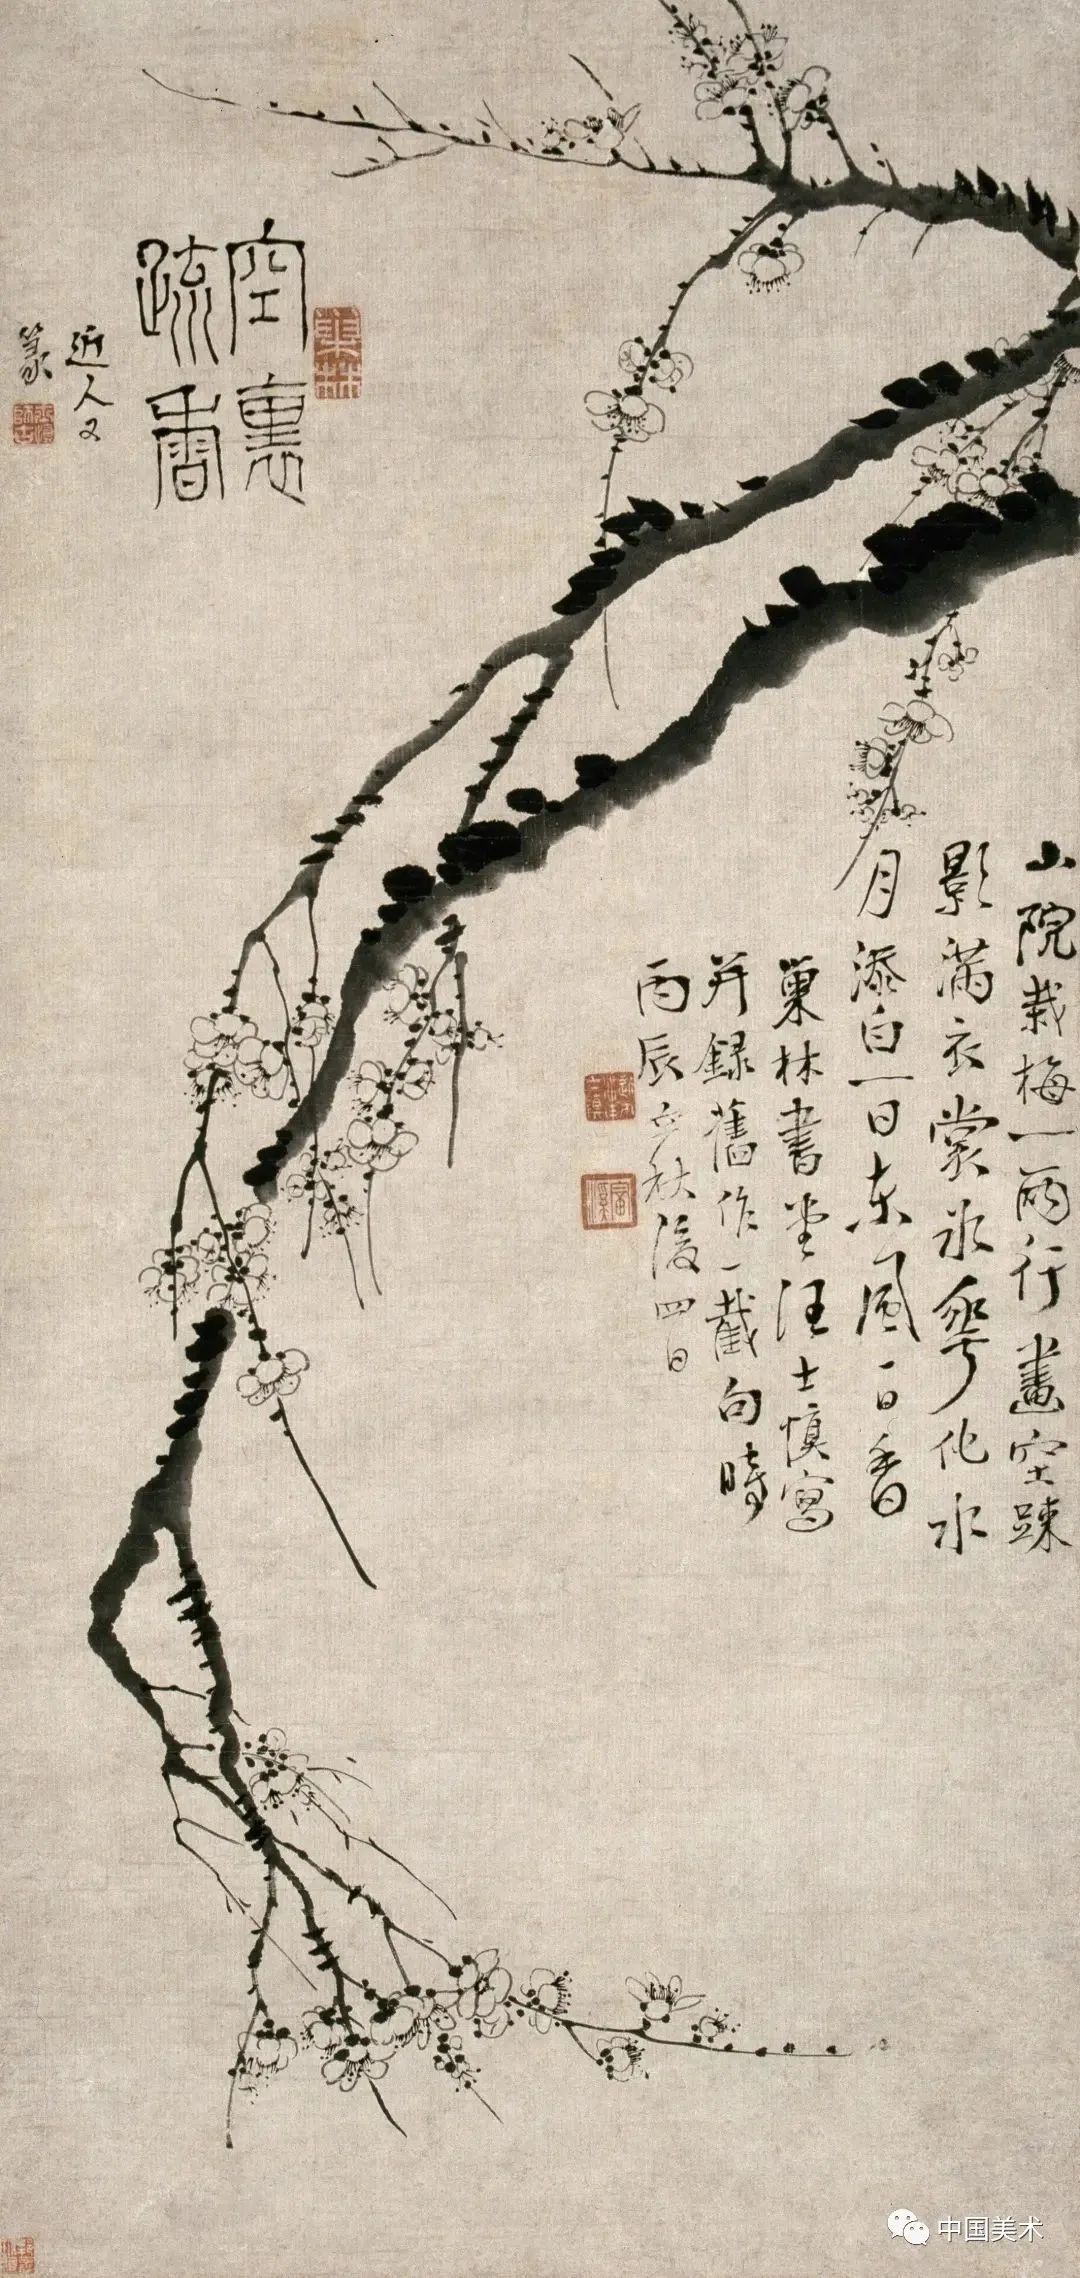 空裏
疏香
近人又
篆
山院栽梅一兩行畫空疎
影滿衣裳冰華化水
月添白一日東風一日香
巢林書堂汪士慎寫
并録舊作一截句時
丙辰立秋後四日
巢林
中国美术